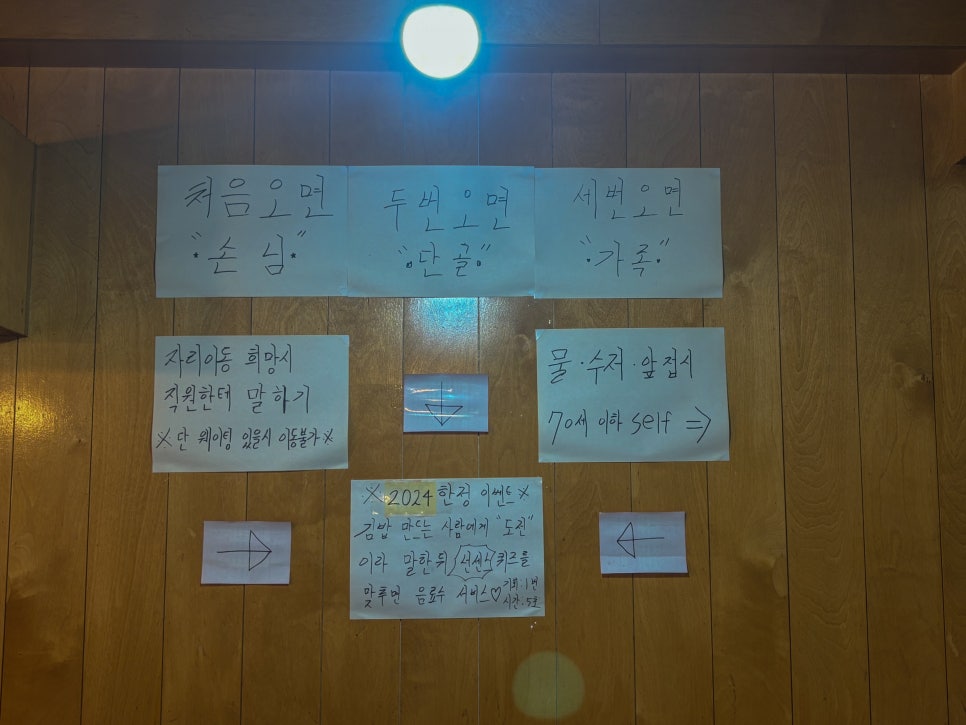 처음오면
"손님"
두번오면
"단골"
세번오면
"가족"
자리이동 희망시
직원한테 말하기
※단 웨이팅 있을시 이동불가※
물·수저·앞접시
70세 이하 self ⇒
※2024 한정 이벤트※
김밥 만드는 사람에게 "도전"
이라 말한뒤 넌센스 퀴즈를
맞추면 음료수 서비스♡
기회:1번
시간:5초